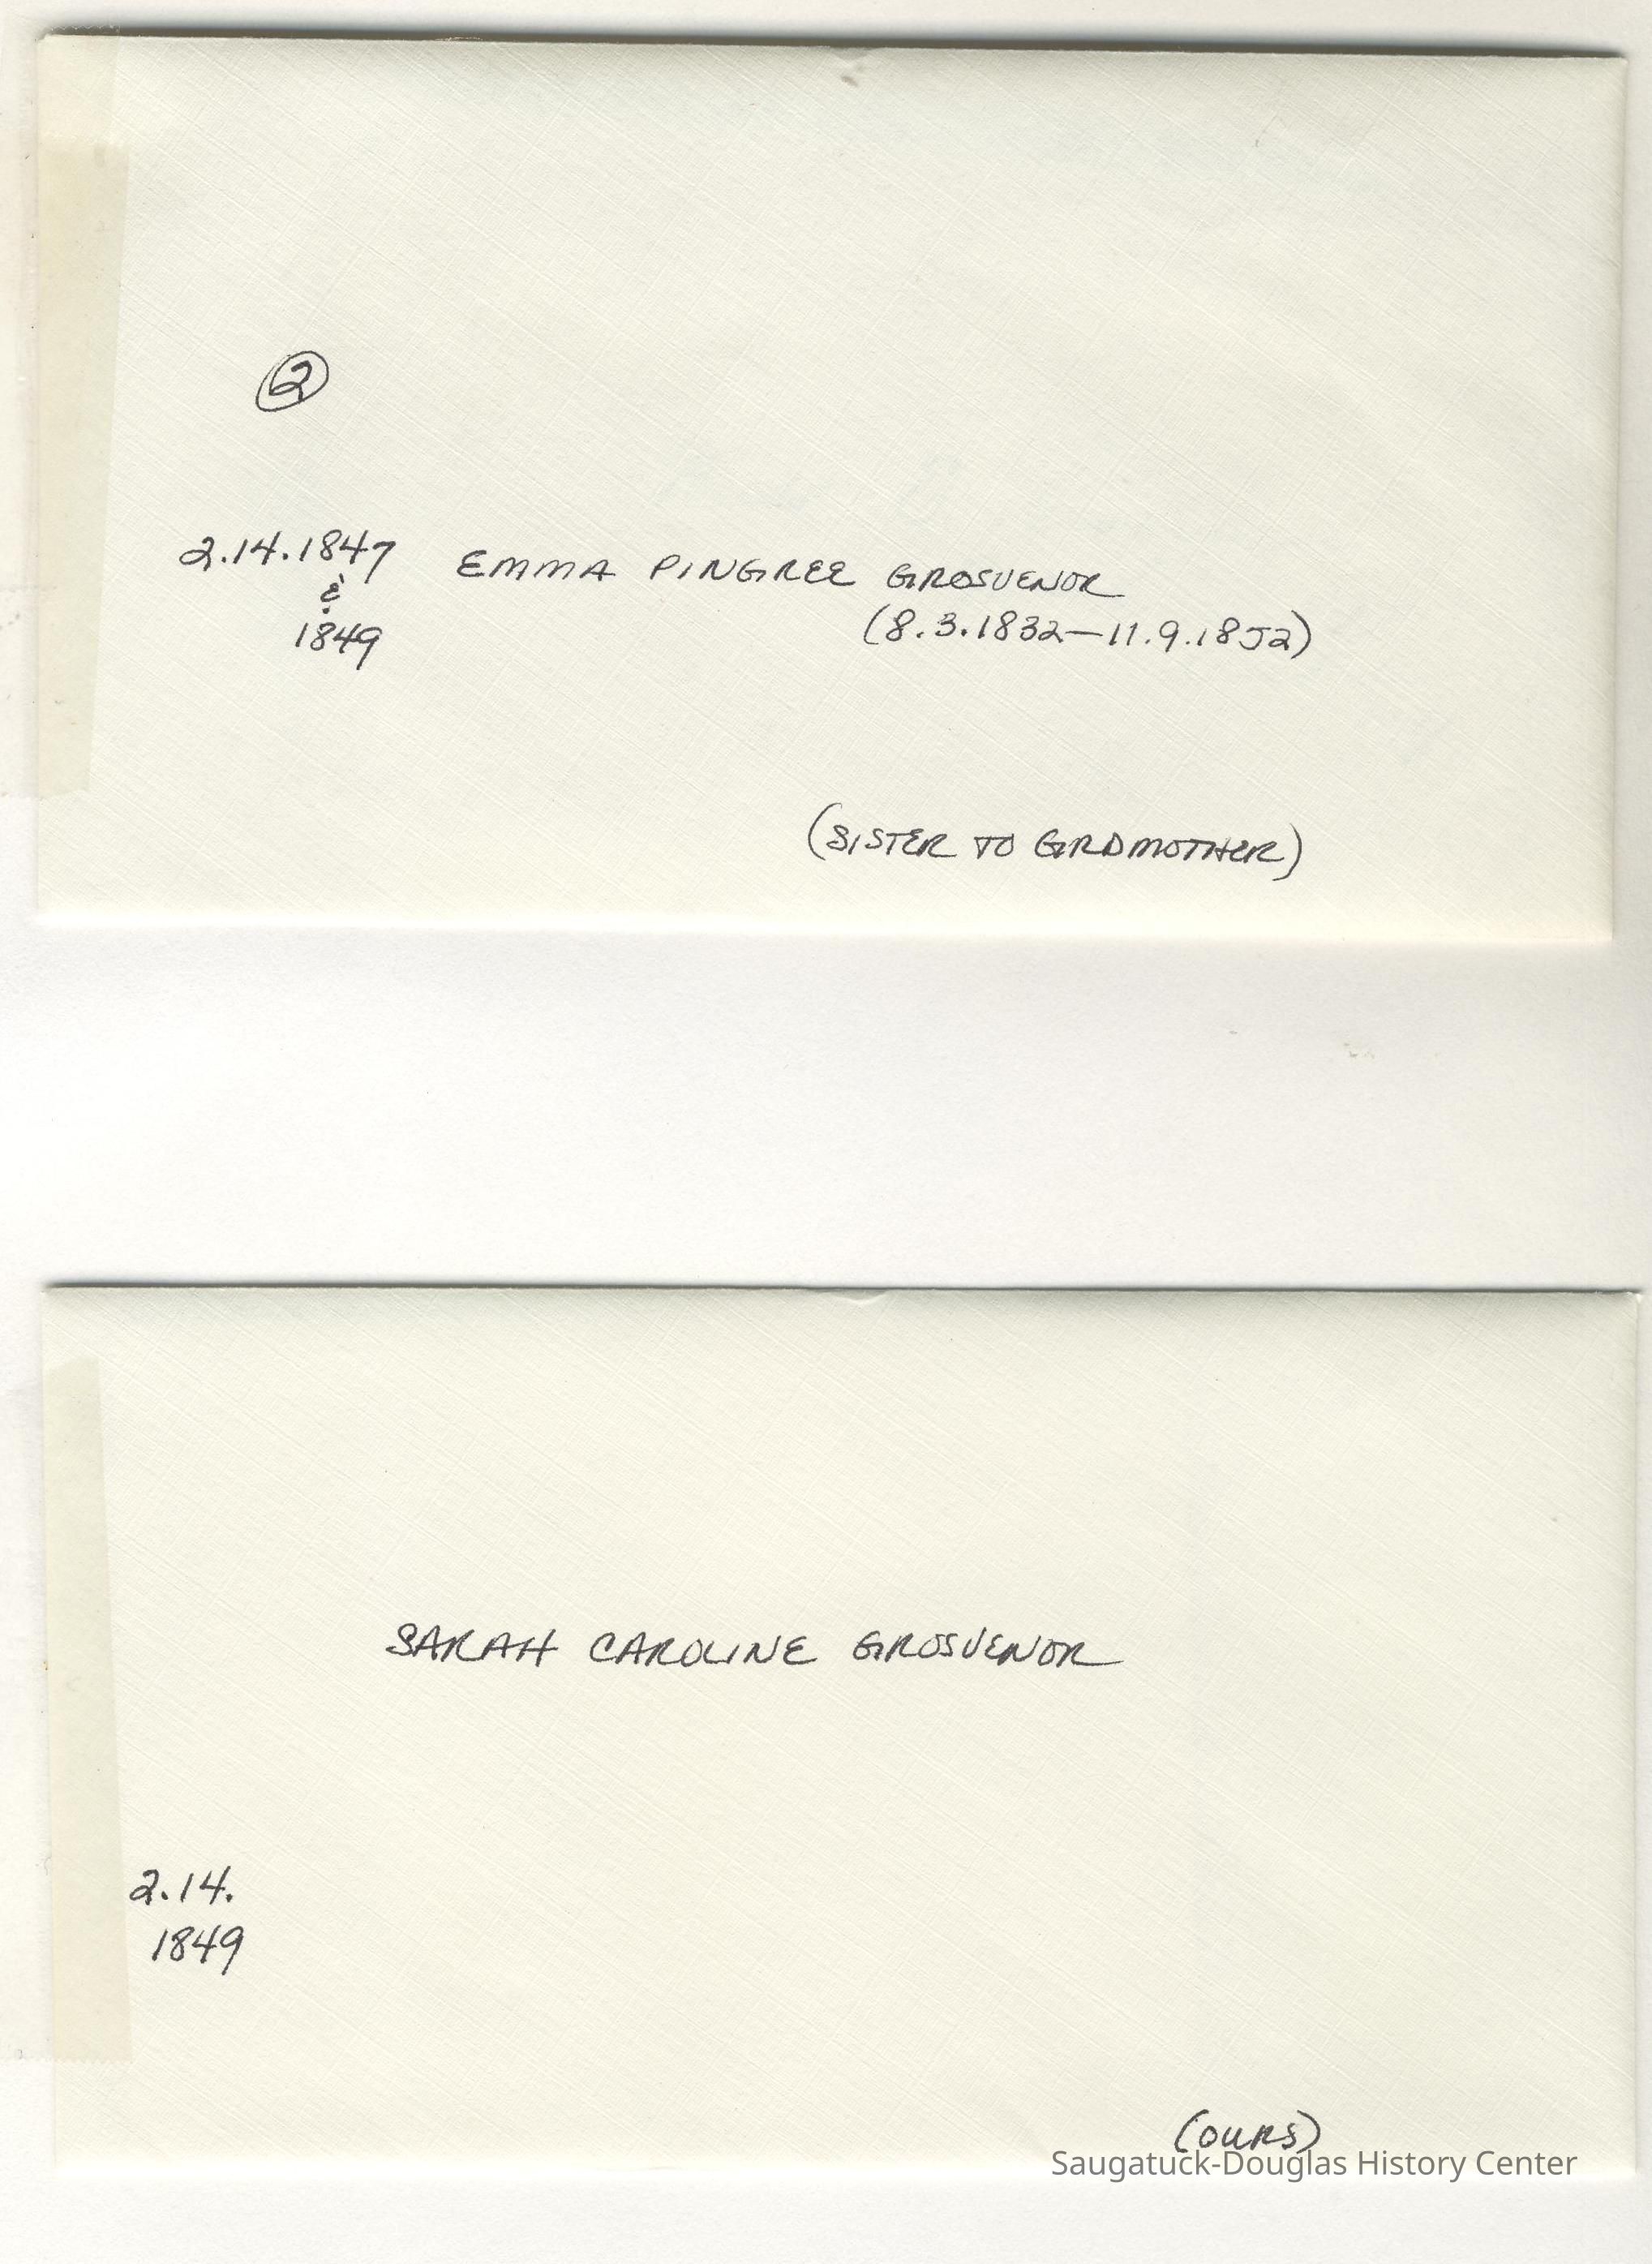 ②
2.14.1847 EMMA PINGREE GROSVENOR
&
1849 (8.3.1832—11.9.1852)
(SISTER TO GRDMOTHER)
SARAH CAROLINE GROSVENOR
2.14.
1849
(OURS)
Saugatuck-Douglas History Center